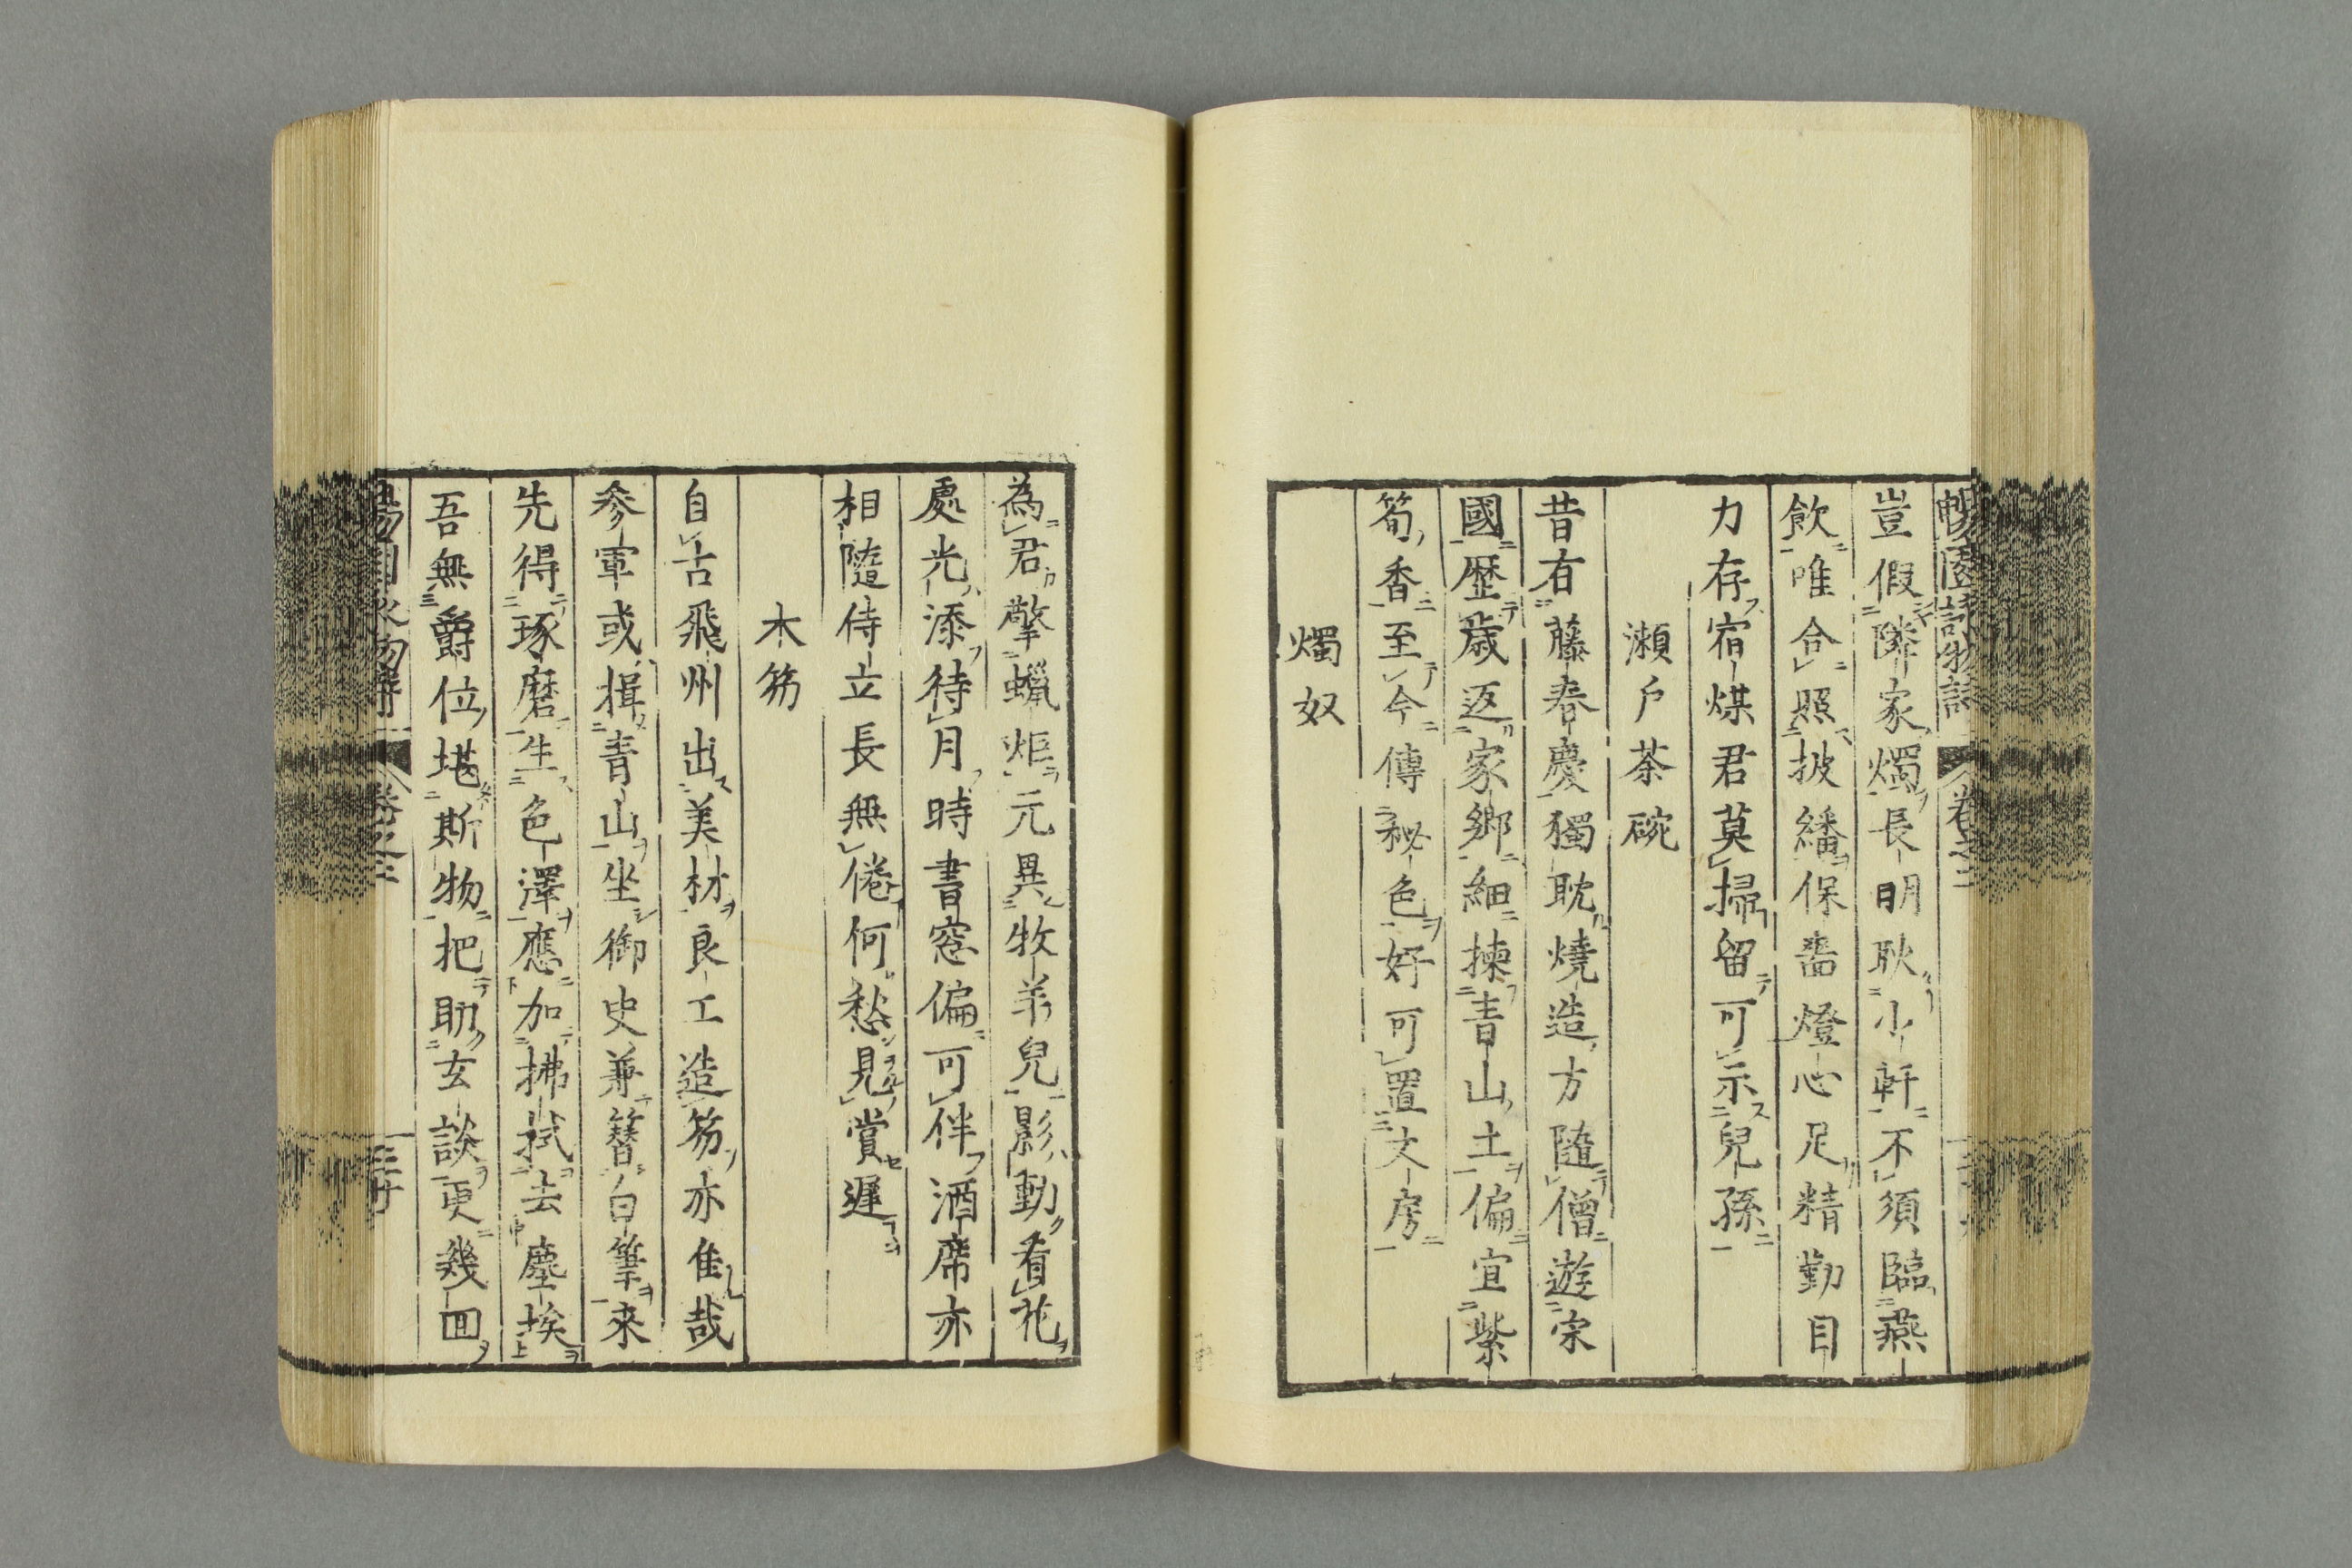 豈假隣家燭長明耿小軒不須臨燕
飲唯合照披繙保嗇燈心足精勤目
力存宿煤君莫掃留可示兒孫
瀬戶茶碗
昔有藤春慶獨耽燒造方隨僧遊宋
國歷歲返家鄉細揀青山土偏宜紫
筍香至今傳祕色好可置文房
燭奴
為君擎蠟炬元異牧羊兒影動看花
處光添待月時書窓偏可伴酒席亦
相隨侍立長無倦何愁見賞遲
木笏
自古飛州出美材良工造笏亦隹哉
參軍或揖青山坐御史兼簪白筆來
先得琢磨生色澤應加拂拭去塵埃
吾無爵位堪斯物把助玄談更幾回
卷之二